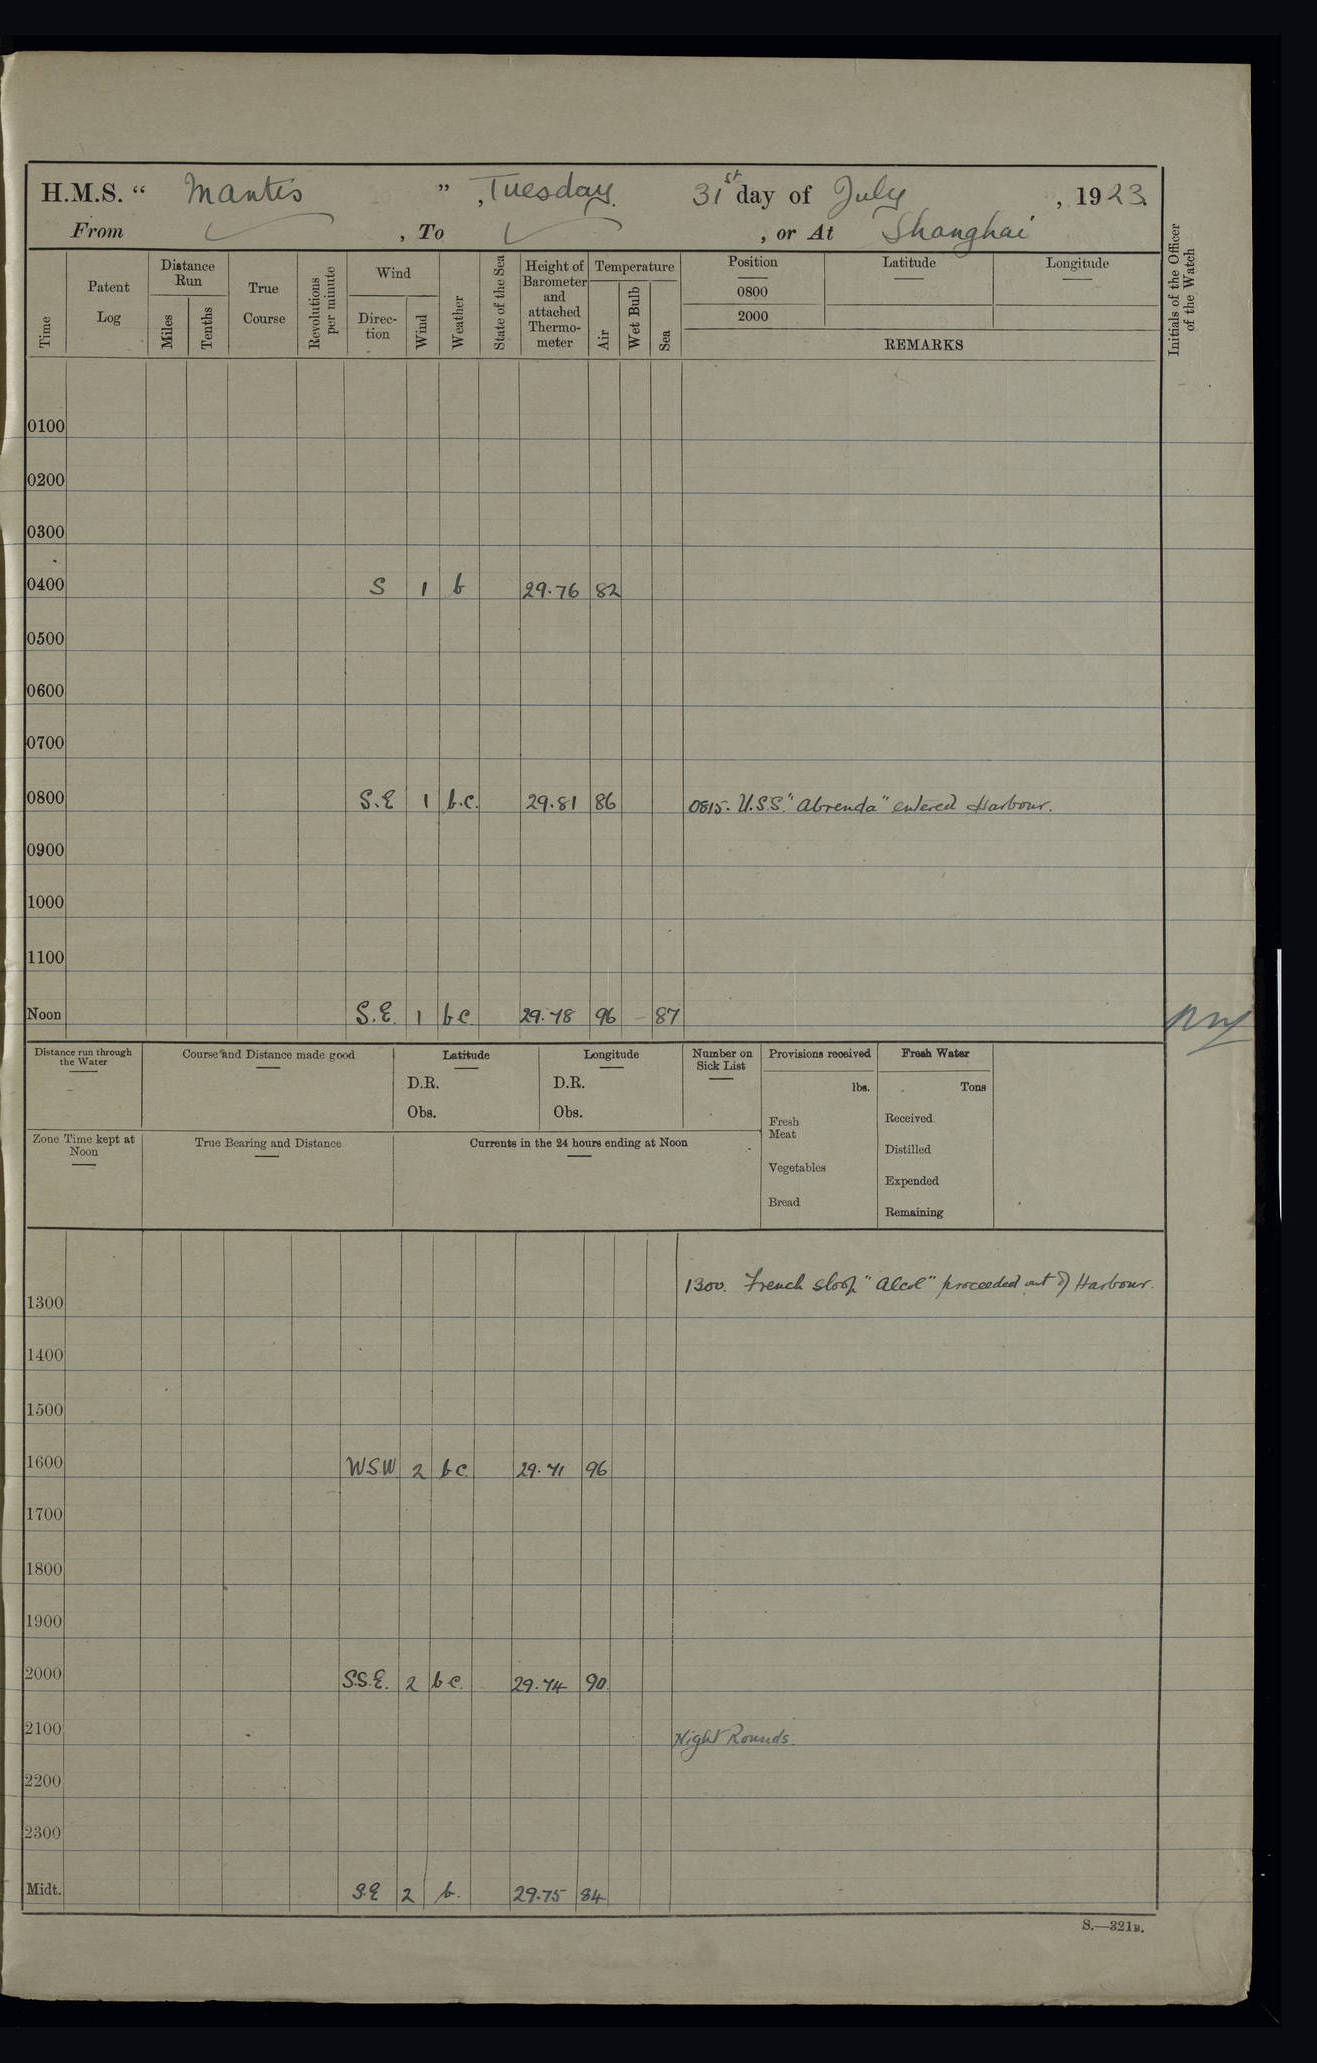 H.M.S. “ Mantis ”, Tuesday. 31st day of July, 1923.
From , To , or At Shanghai
Time
Patent Log
Distance Run
Miles
Tenths
True Course
Revolutions per minute
Wind
Direc-tion
Wind
Weather
State of the Sea
Height of Barometer and attached Thermo-meter
Temperature
Air
Wet Bulb
Sea
Position
0800
2000
Latitude
Longitude
REMARKS
Initials of the Officer of the Watch
0100
0200
0300
0400 S 1 b 29.76 82
0500
0600
0700
0800 S.E 1 b.c. 29.81 86 0815. U.S.S. "Abrenda" entered Harbour.
0900
1000
1100
Noon S.E. 1 bc. 29.78 96 – 87
Distance run through the Water
Course and Distance made good
Latitude
D.R.
Obs.
Longitude
D.R.
Obs.
Number on Sick List
Provisions received
lbs.
Fresh Meat
Vegetables
Bread
Fresh Water
Tons
Received
Distilled
Expended
Remaining
Zone Time kept at Noon
True Bearing and Distance
Currents in the 24 hours ending at Noon
1300 1300. French sloop "Alcol" proceeded out of Harbour.
1400
1500
1600 W.S.W 2 bc 29.71 96
1700
1800
1900
2000 S.S.E. 2 bc. 29.74 90.
2100 Night Rounds.
2200
2300
Midt. S.E 2 b. 29.75 84
S.—321B.